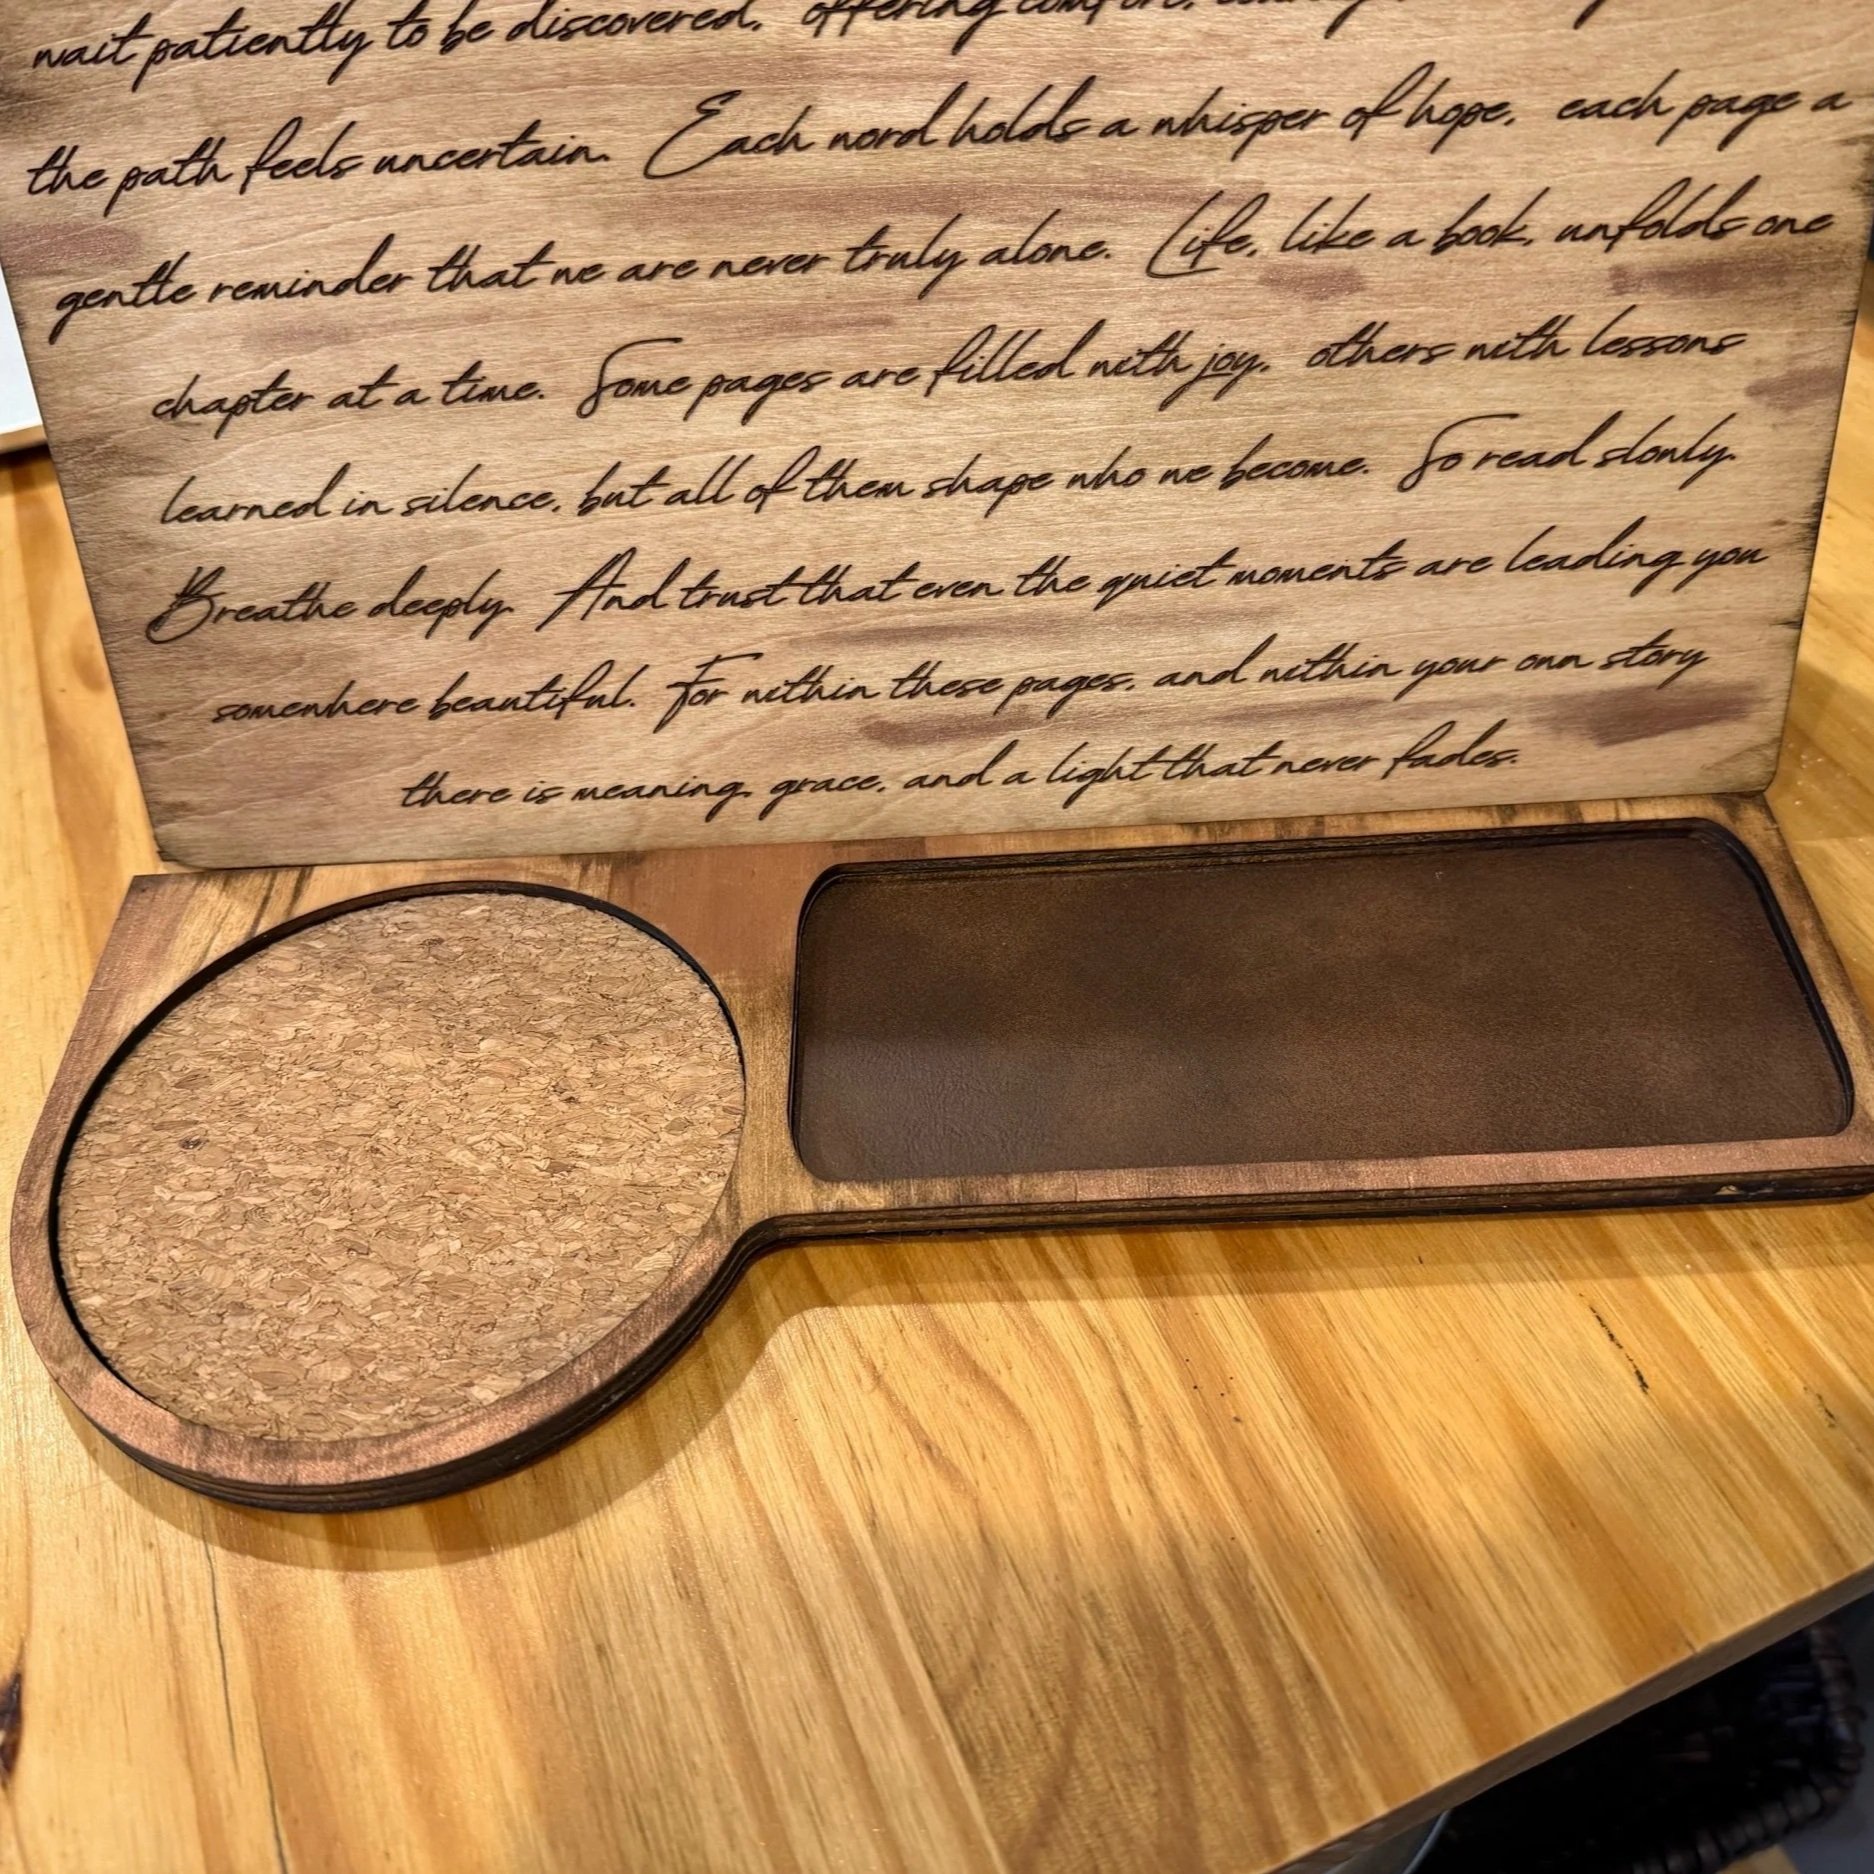 wait patiently to be discovered, offering comfort,
the path feels uncertain. Each word holds a whisper of hope, each page a
gentle reminder that we are never truly alone. Life, like a book, unfolds one
chapter at a time. Some pages are filled with joy, others with lessons
learned in silence, but all of them shape who we become. So read slowly.
Breathe deeply. And trust that even the quiet moments are leading you
somewhere beautiful. For within these pages, and within your own story
there is meaning, grace, and a light that never fades.